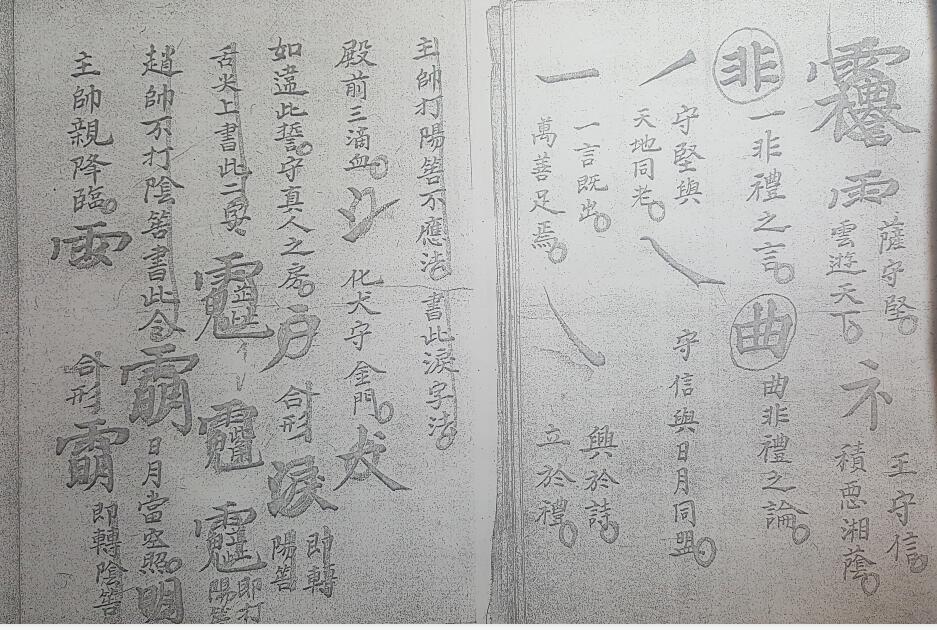 雨 薩守堅
雲遊天下
礻 王守信
積惡湘蔭
非 一非禮之言 曲 曲非禮之論
丿 守堅與
天地同老
㇏ 守信與日月同盟
一 一言既出
萬善足焉
㇏ 興於詩
立於禮
主帥打陽筶不應法 書此淚字法
殿前三滴血 氵 化犬守金門 犬
如違此誓守真人之房 戶 合形 淚 即轉
陽筶
舌尖上書此二 即打
陽筶
趙帥不打陰筶書此令 日月當空照 明
主帥親降臨 雨 合形 即轉陰筶